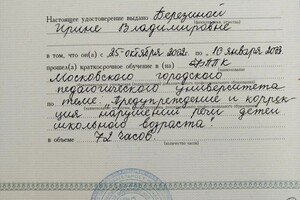 Настоящее удостоверение выдано Березиной
Ирине Владимировне
в том, что он(а) с 25 октября 2002 г. по 10 января 2003
прошел(а) краткосрочное обучение в (на) ФППК
Московского городского
педагогического университета
по теме „Предупреждение и коррек-
ция нарушений речи детей
школьного возраста"
в объеме 72 часов